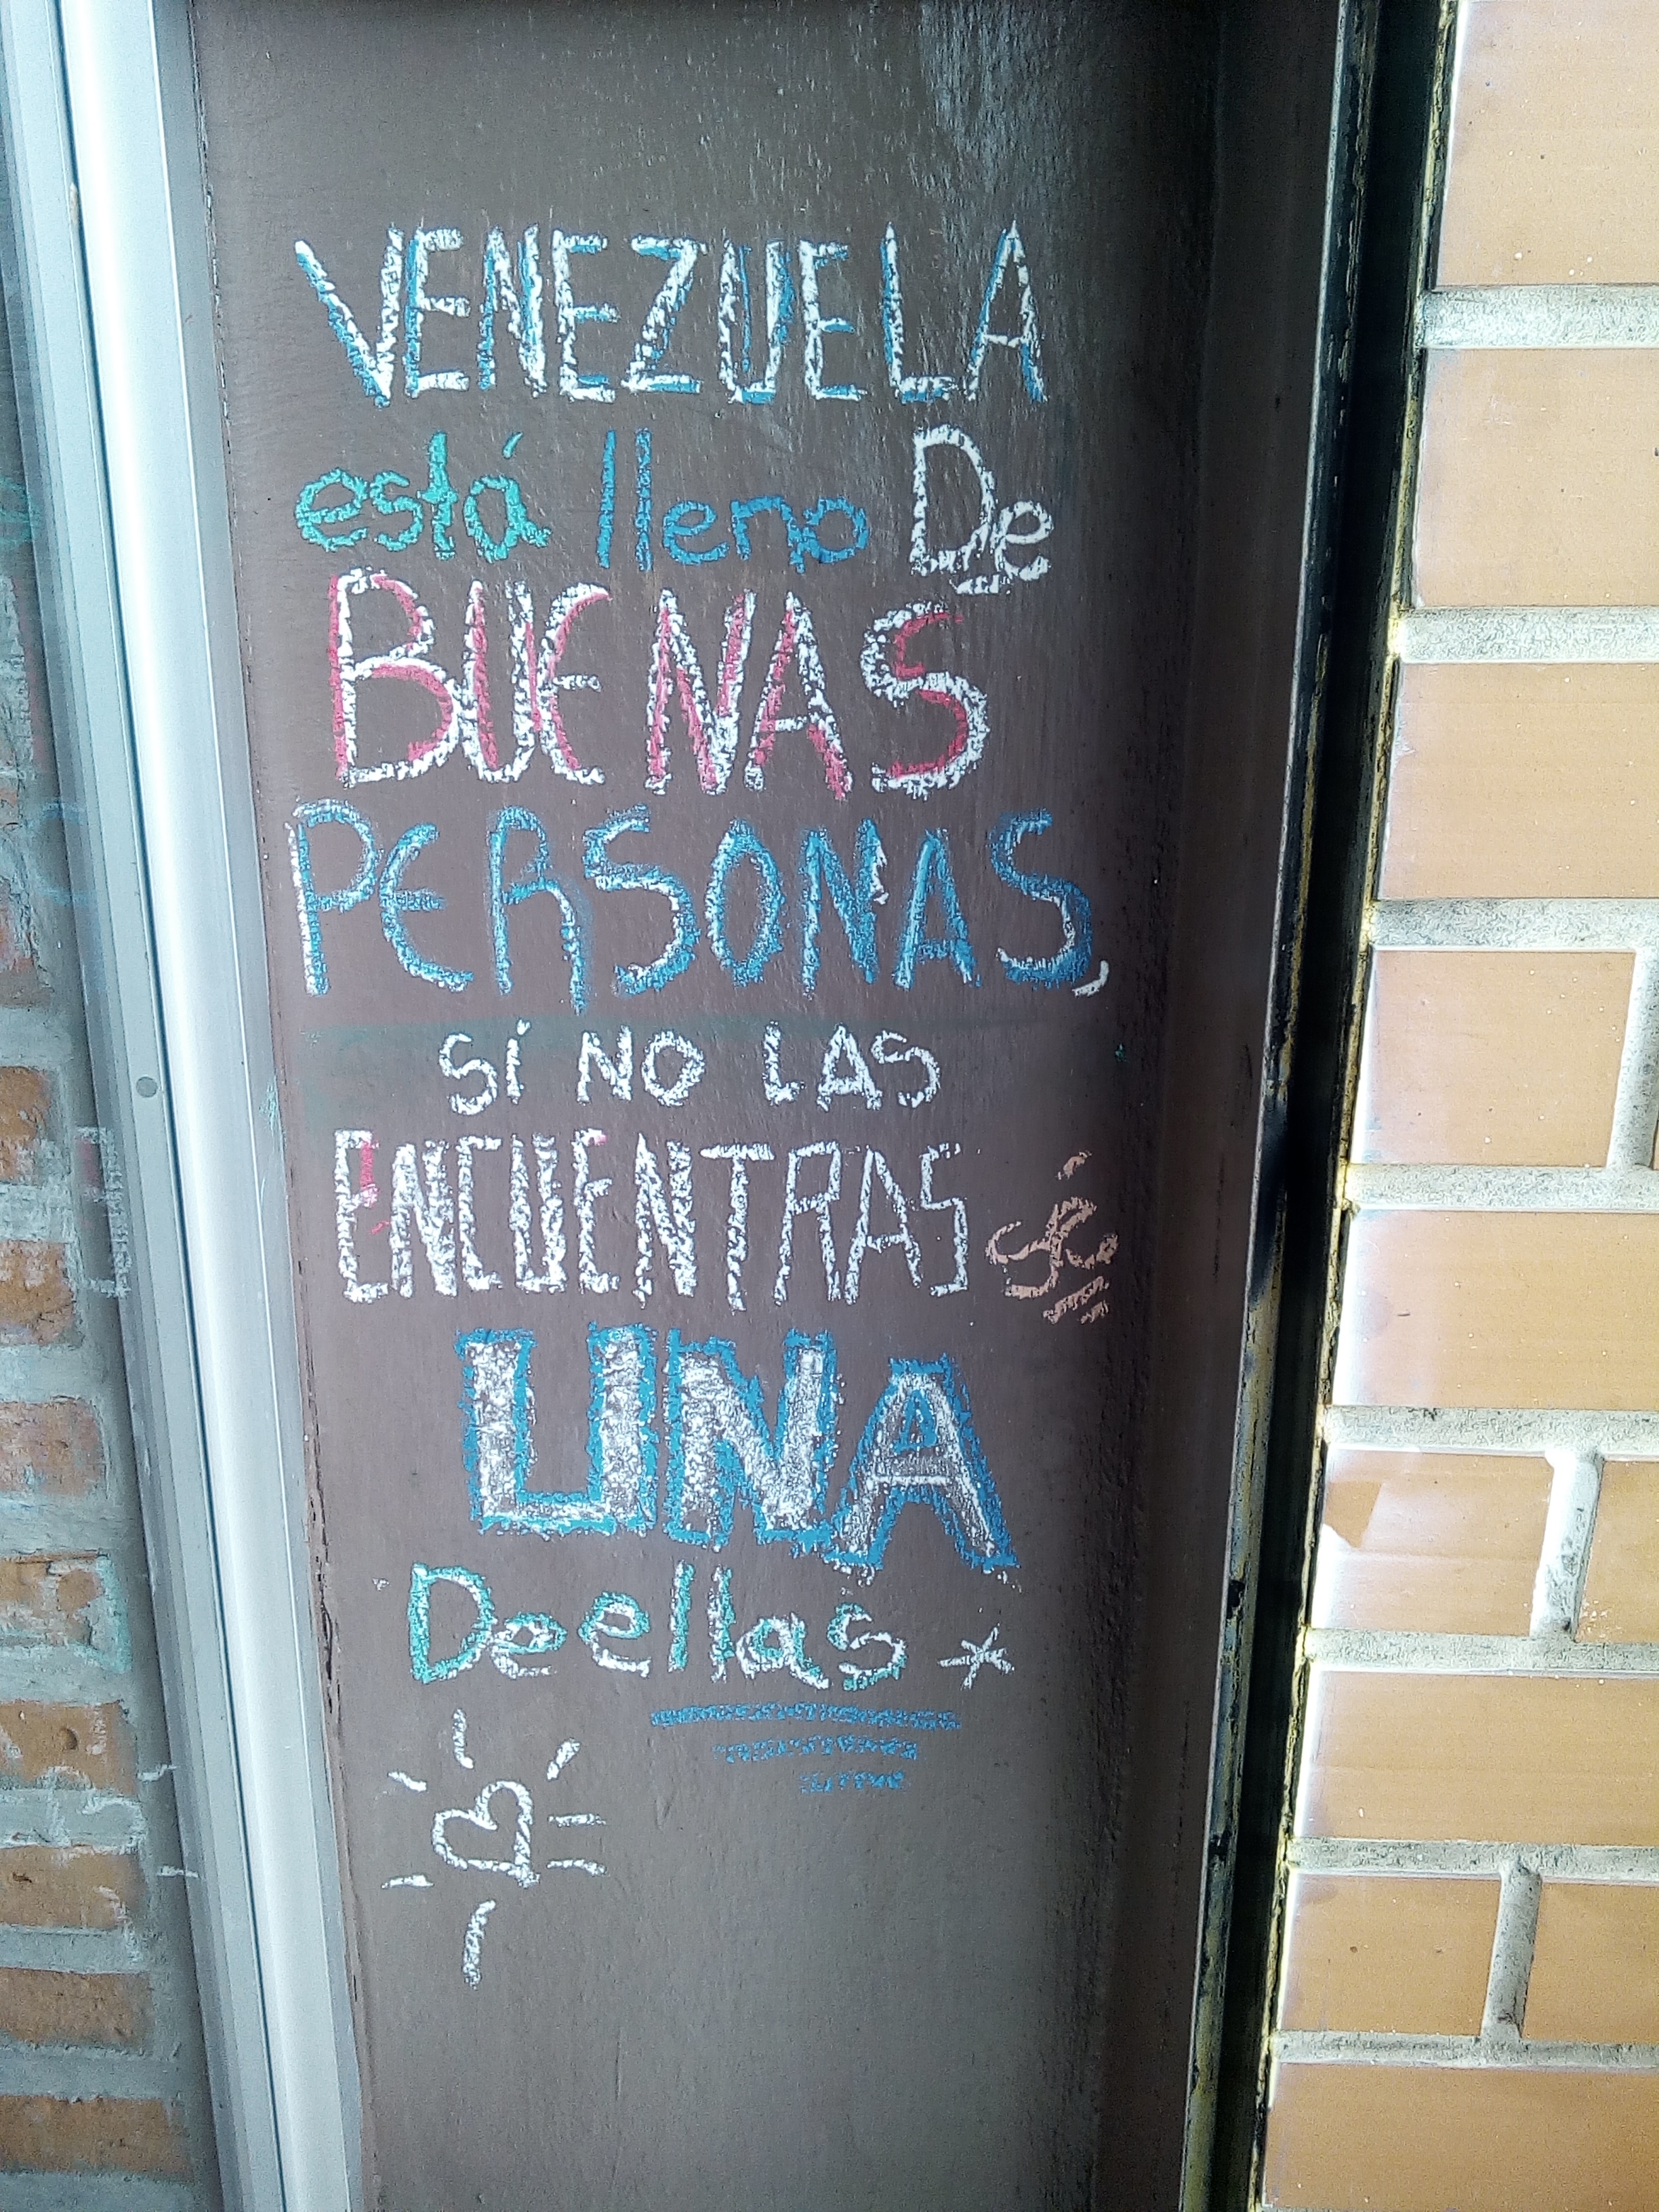 VENEZUELA
está lleno De
BUENAS
PERSONAS,
SÍ NO LAS
ENCUENTRAS sé
UNA
De ellas *